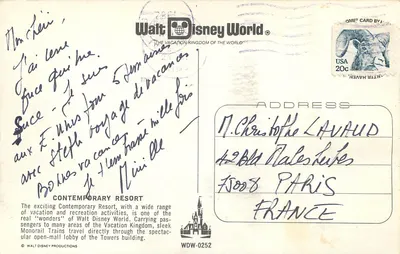 Walt Disney World®
THE VACATION KINGDOM OF THE WORLD
USA
20c
Mon chéri,
J'ai tenu
- Je suis
aux E. Unis pour 3 semaines
avec Steph voyage de vacances
Bonnes vacances
Je t'embrasse mille fois
ADDRESS
M. Christophe LAVAUD
42 Bld Malesherbes
75008 PARIS
FRANCE
CONTEMPORARY RESORT
The exciting Contemporary Resort, with a wide range
of vacation and recreation activities, is one of the
real "wonders" of Walt Disney World. Carrying pas-
sengers to many areas of the Vacation Kingdom, sleek
Monorail Trains travel directly through the spectac-
ular open-mall lobby of the Towers building.
© WALT DISNEY PRODUCTIONS
WDW-0252